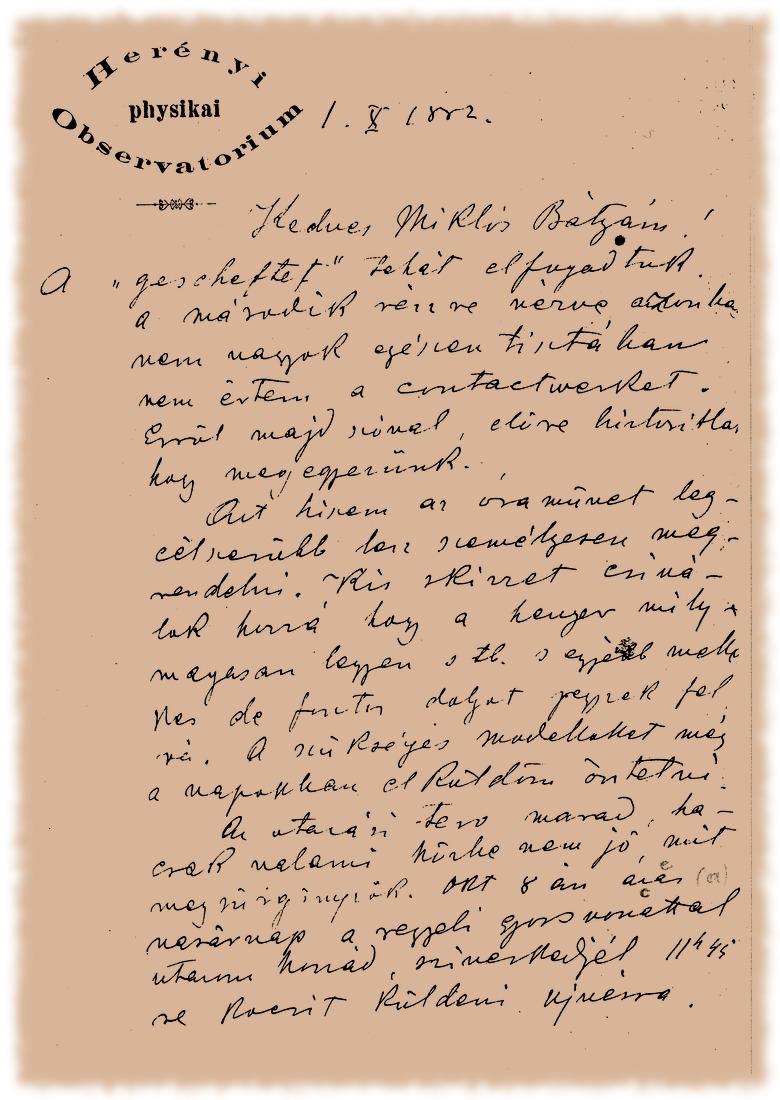 Herényi
physikai
Observatorium
1. X 1882.
Kedves Miklós Bátyám!
A "gescheftet" tehát elfogadtuk.
a második részre nézve azonba
nem vagyok egészen tisztában
nem értem a contactwerket.
Erről majd szóval, előre biztosítla,
hogy megegyezünk.
Azt hiszem az óraművet leg-
célszerűbb lesz személyesen meg-
rendelni. Kis skizzet csiná-
lok hozzá hogy a henger mily
magasan legyen stb. s egyébb mellé
kes de fontos dolgot jegyzek fel
rá. A szükséges modelleket még
a napokban elküldöm öntetni.
Az utazási terv marad, ha-
csak valami közbe nem jő, mit
megsürgönyzök. Okt 8 án azaz (a)
vasárnap a reggeli gyorsvonattal
utazom hozzád, szíveskedjél 11h45
re kocsit küldeni Ujvásra.